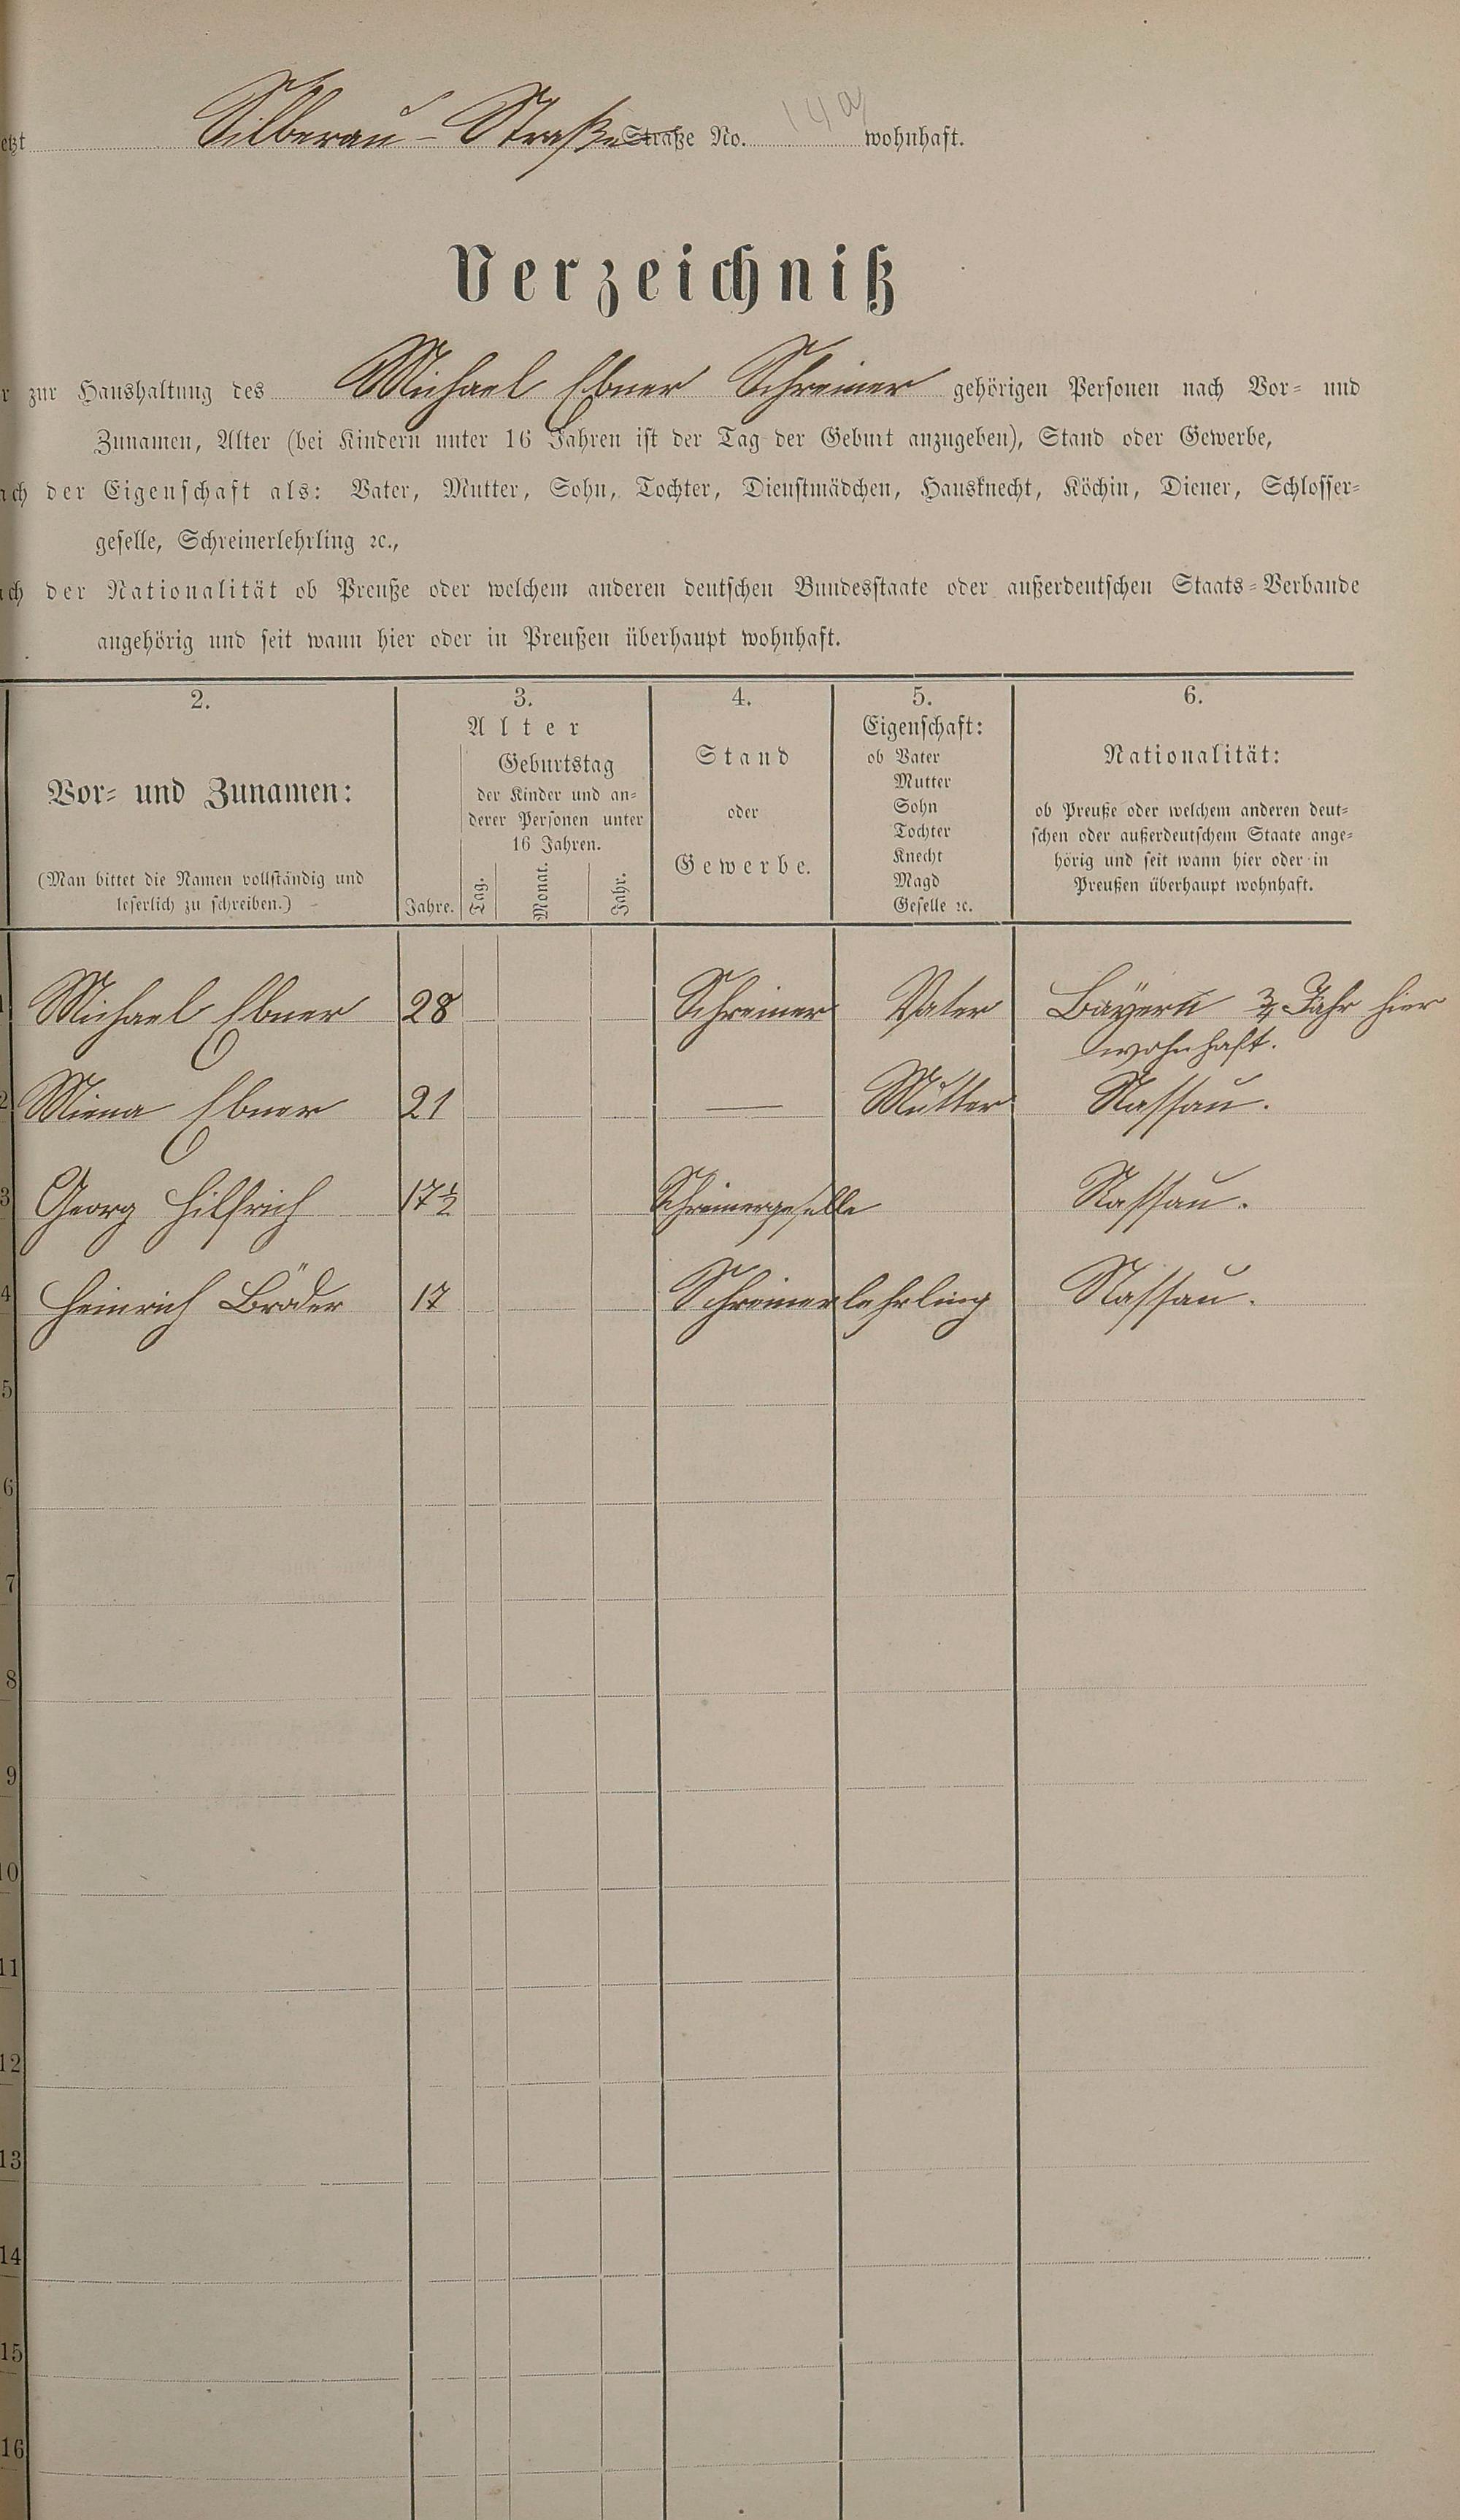 etzt Silberau-Straße Straße No. 14a wohnhaft.
Verzeichniß
r zur Haushaltung des Michael Ebner Schreiner gehörigen Personen nach Vor- und
Zunamen, Alter (bei Kindern unter 16 Jahren ist der Tag der Geburt anzugeben), Stand oder Gewerbe,
ach der Eigenschaft als: Vater, Mutter, Sohn, Tochter, Dienstmädchen, Hausknecht, Köchin, Diener, Schlosser-
geselle, Schreinerlehrling ꝛc.,
ach der Nationalität ob Preuße oder welchem anderen deutschen Bundesstaate oder außerdeutschen Staats-Verbande
angehörig und seit wann hier oder in Preußen überhaupt wohnhaft.
2.
Vor- und Zunamen:
(Man bittet die Namen vollständig und
leserlich zu schreiben.)
3.
Alter
Geburtstag
der Kinder und an-
derer Personen unter
16 Jahren.
Jahre. Tag. Monat. Jahr.
4.
Stand
oder
Gewerbe.
5.
Eigenschaft:
ob Vater
Mutter
Sohn
Tochter
Knecht
Magd
Geselle ꝛc.
6.
Nationalität:
ob Preuße oder welchem anderen deut-
schen oder außerdeutschem Staate ange-
hörig und seit wann hier oder in
Preußen überhaupt wohnhaft.
1 Michael Ebner 28 Schreiner Vater Bayern ¾ Jahr hier
wohnhaft.
2 Miena Ebner 21 — Mutter Nassau.
3 Georg Hilfrich 17½ Schreinergeselle Nassau.
4 Heinrich Bröder 17 Schreinerlehrling Nassau.
5
6
7
8
9
10
11
12
13
14
15
16